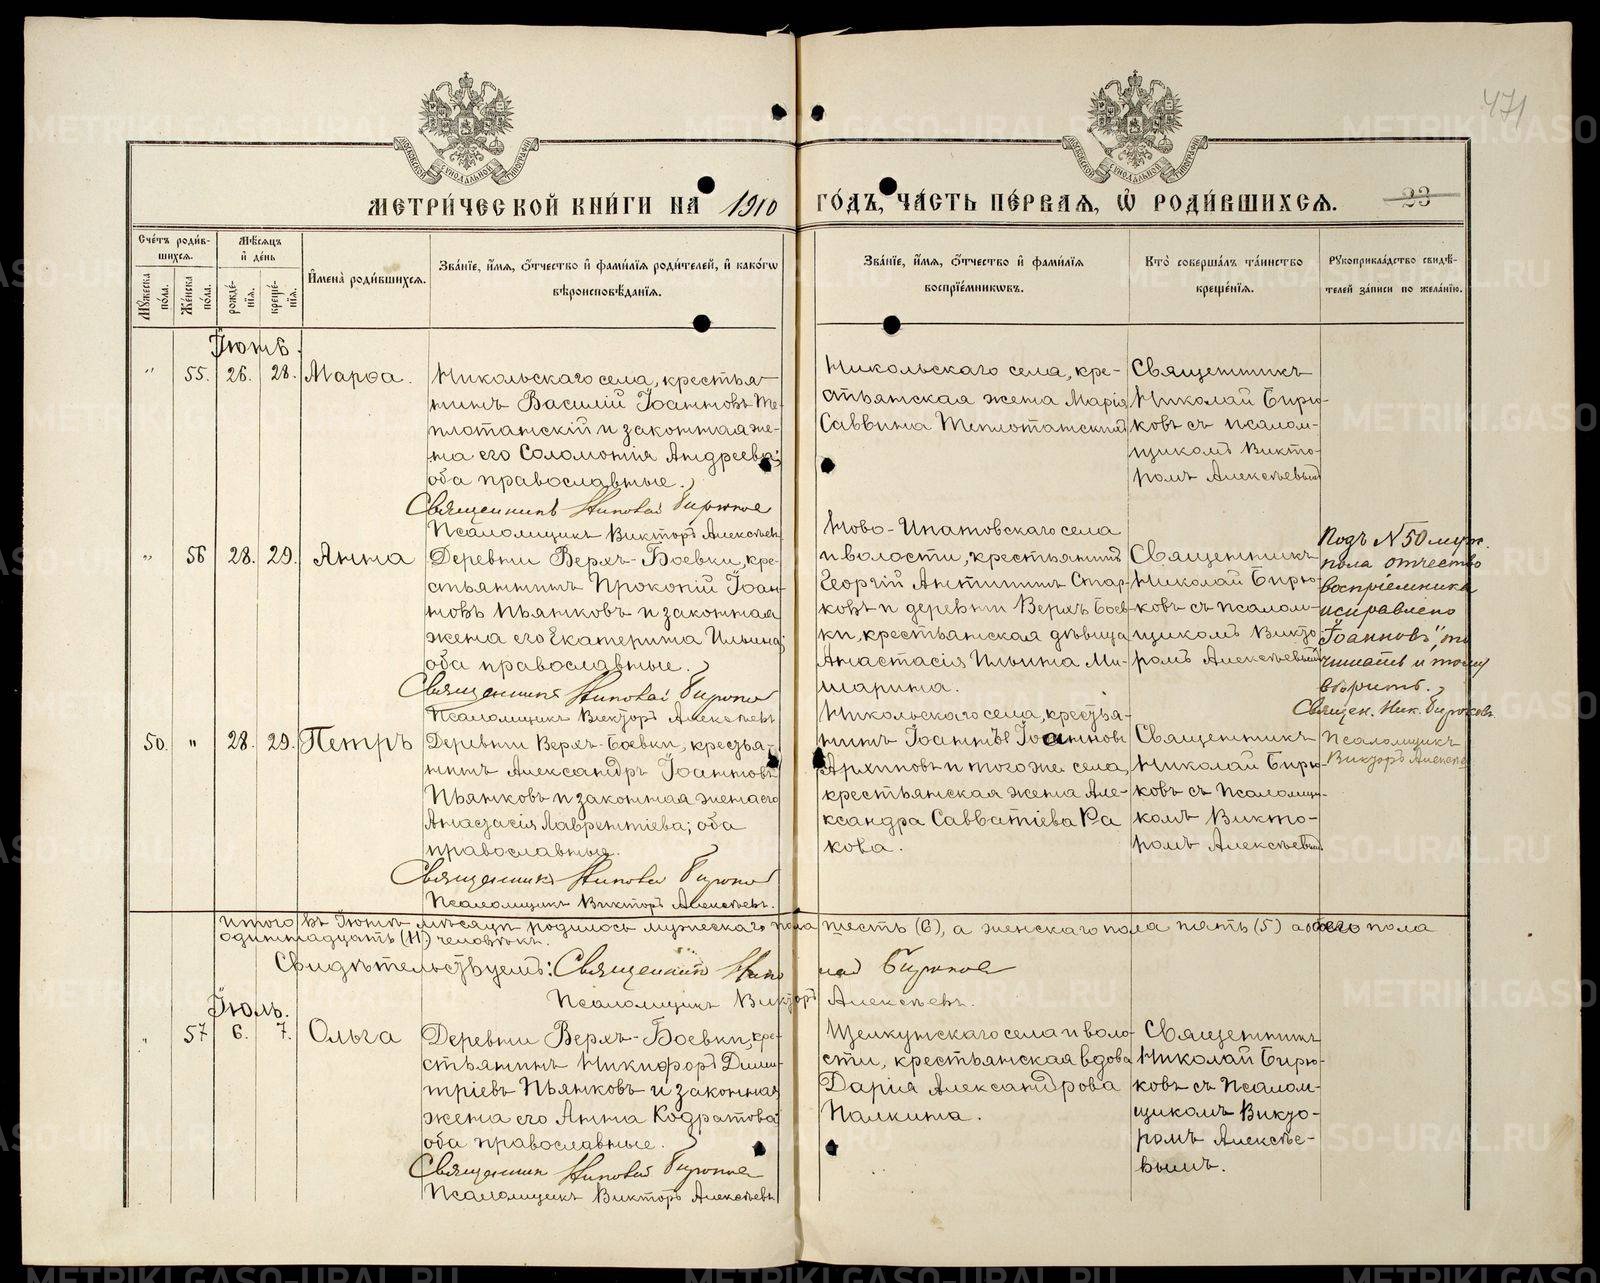 471
МЕТРИ́ЧЕСКОЙ КНИ́ГИ НА 1910 ГО́ДЪ, ЧА́СТЬ ПЕ́РВАѦ, Ѽ РОДИ́ВШИХСѦ.
23
Сче́тъ роди́в-
шихсѧ.
Мꙋ́жеска по́ла.
Же́нска по́ла.
Мѣ́сѧцъ
и҆ де́нь
рожде́-
нїѧ.
креще́-
нїѧ.
И҆мена̀ роди́вшихсѧ.
Зва́нїе, и҆́мѧ, ѻ҆́тчество и҆ фами́лїѧ роди́телей, и҆ како́гѡ
вѣроисповѣ́данїѧ.
Зва́нїе, и҆́мѧ, ѻ҆́тчество и҆ фами́лїѧ
воспрїе́мникѡвъ.
Кто̀ соверша́лъ та́инство
креще́нїѧ.
Рꙋкоприкла́дство свидѣ́-
телей за́писи по жела́нїю.
Іюнь.
" 55. 26. 28. Марѳа.
Никольскаго села, крестья-
нинъ Василій Іоанновъ Те-
плотанскій и законная же-
на его Соломонія Андреева;
оба православные.
Священникъ Николай Бирюков
Псаломщикъ Викторъ Алексѣевъ
Никольскаго села, кре-
стьянская жена Марія
Саввина Теплотанский
Священникъ
Николай Бирю-
ковъ съ псалом-
щикомъ Викто-
ромъ Алексѣевым
" 56 28. 29. Анна
Деревни Верхъ-Боевки, кре-
стьянинъ Прокопій Іоан-
новъ Пьянковъ и законная
жена его Екатерина Ильина;
оба православные.
Священникъ Николай Бирюков
Псаломщикъ Викторъ Алексѣевъ
Ново-Ипатовскаго села
и волости, крестьянинъ
Георгій Антипинъ Стар-
ковъ и деревни Верхъ Боев-
ки, крестьянская дѣвица
Анастасія Ильина Ми-
шарина.
Священникъ
Николай Бирю-
ковъ съ псалом-
щикомъ Викто-
ромъ Алексѣевым
Подъ N 50 муж.
пола отчество
воспріемника
исправлено
"Іоанновъ", то
читать и тому
вѣрить.
Священ. Ник. Бирюковъ
Псаломщикъ
Викторъ Алексѣе
50. " 28. 29. Петръ
Деревни Верхъ-Боевки, крестья-
нинъ Александръ Іоанновъ
Пьянковъ и законная жена его
Анастасія Лаврентіева; оба
православные.
Священникъ Николай Бирюков
Псаломщикъ Викторъ Алексѣевъ.
Никольскаго села, крестья-
нинъ Іоаннъ Іоаннов
Архиповъ и того же села,
крестьянская жена Але-
ксандра Савватіева Ра
кова.
Священникъ
Николай Бирю-
ковъ съ Псаломщи-
комъ Викто-
ромъ Алексѣевым
Итого въ Іюнѣ мѣсяцѣ родилось мужескаго пола шесть (6), а женскаго пола пять (5) а обоего пола
одиннадцать (11) человѣкъ.
Свидѣтельствуемъ: Священникъ Николай Бирюков
Псаломщикъ Викторъ Алексѣевъ.
Іюль.
" 57 6. 7. Ольга
Деревни Верхъ-Боевки, кре-
стьянинъ Никифоръ Дими-
тріевъ Пьянковъ и законная
жена его Анна Кодратова
оба православные.
Священник Николай Бирюков
Псаломщикъ Викторъ Алексѣевъ
Щелкунскаго села и воло-
сти, крестьянская вдова
Дарія Александрова
Палкина.
Священникъ
Николай Бирю-
ковъ съ Псалом-
щикомъ Викто-
ромъ Алексѣе-
вымъ.
METRIKI.GASO-URAL.RU